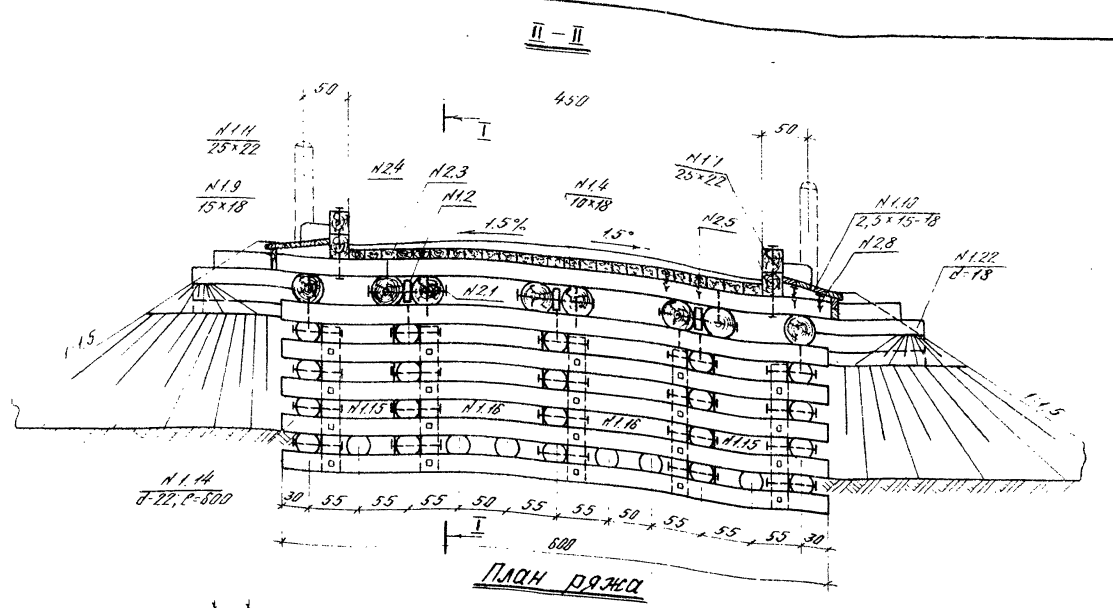 II - II
50
450
50
I
N1.11
25×22
N2.4
N2.3
N1.2
N1.4
10×18
N1.1
25×22
N1.9
15×18
N2.5
N1.10
2,5×15-18
N2.8
N1.22
d=18
1.5%
1.5°
N2.1
1:1.5
1:1.5
N1.15
N1.16
N1.16
N1.15
N1.14
d=22, ℓ=600
30 55 55 55 50 55 55 50 55 55 55 30
I
600
План ряжа